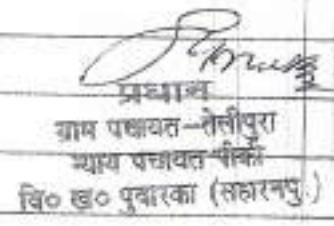 प्रधान
ग्राम पंचायत-तेलीपुरा
न्याय पंचायत-पीकी
वि० ख० पुवारका (सहारनपुर)